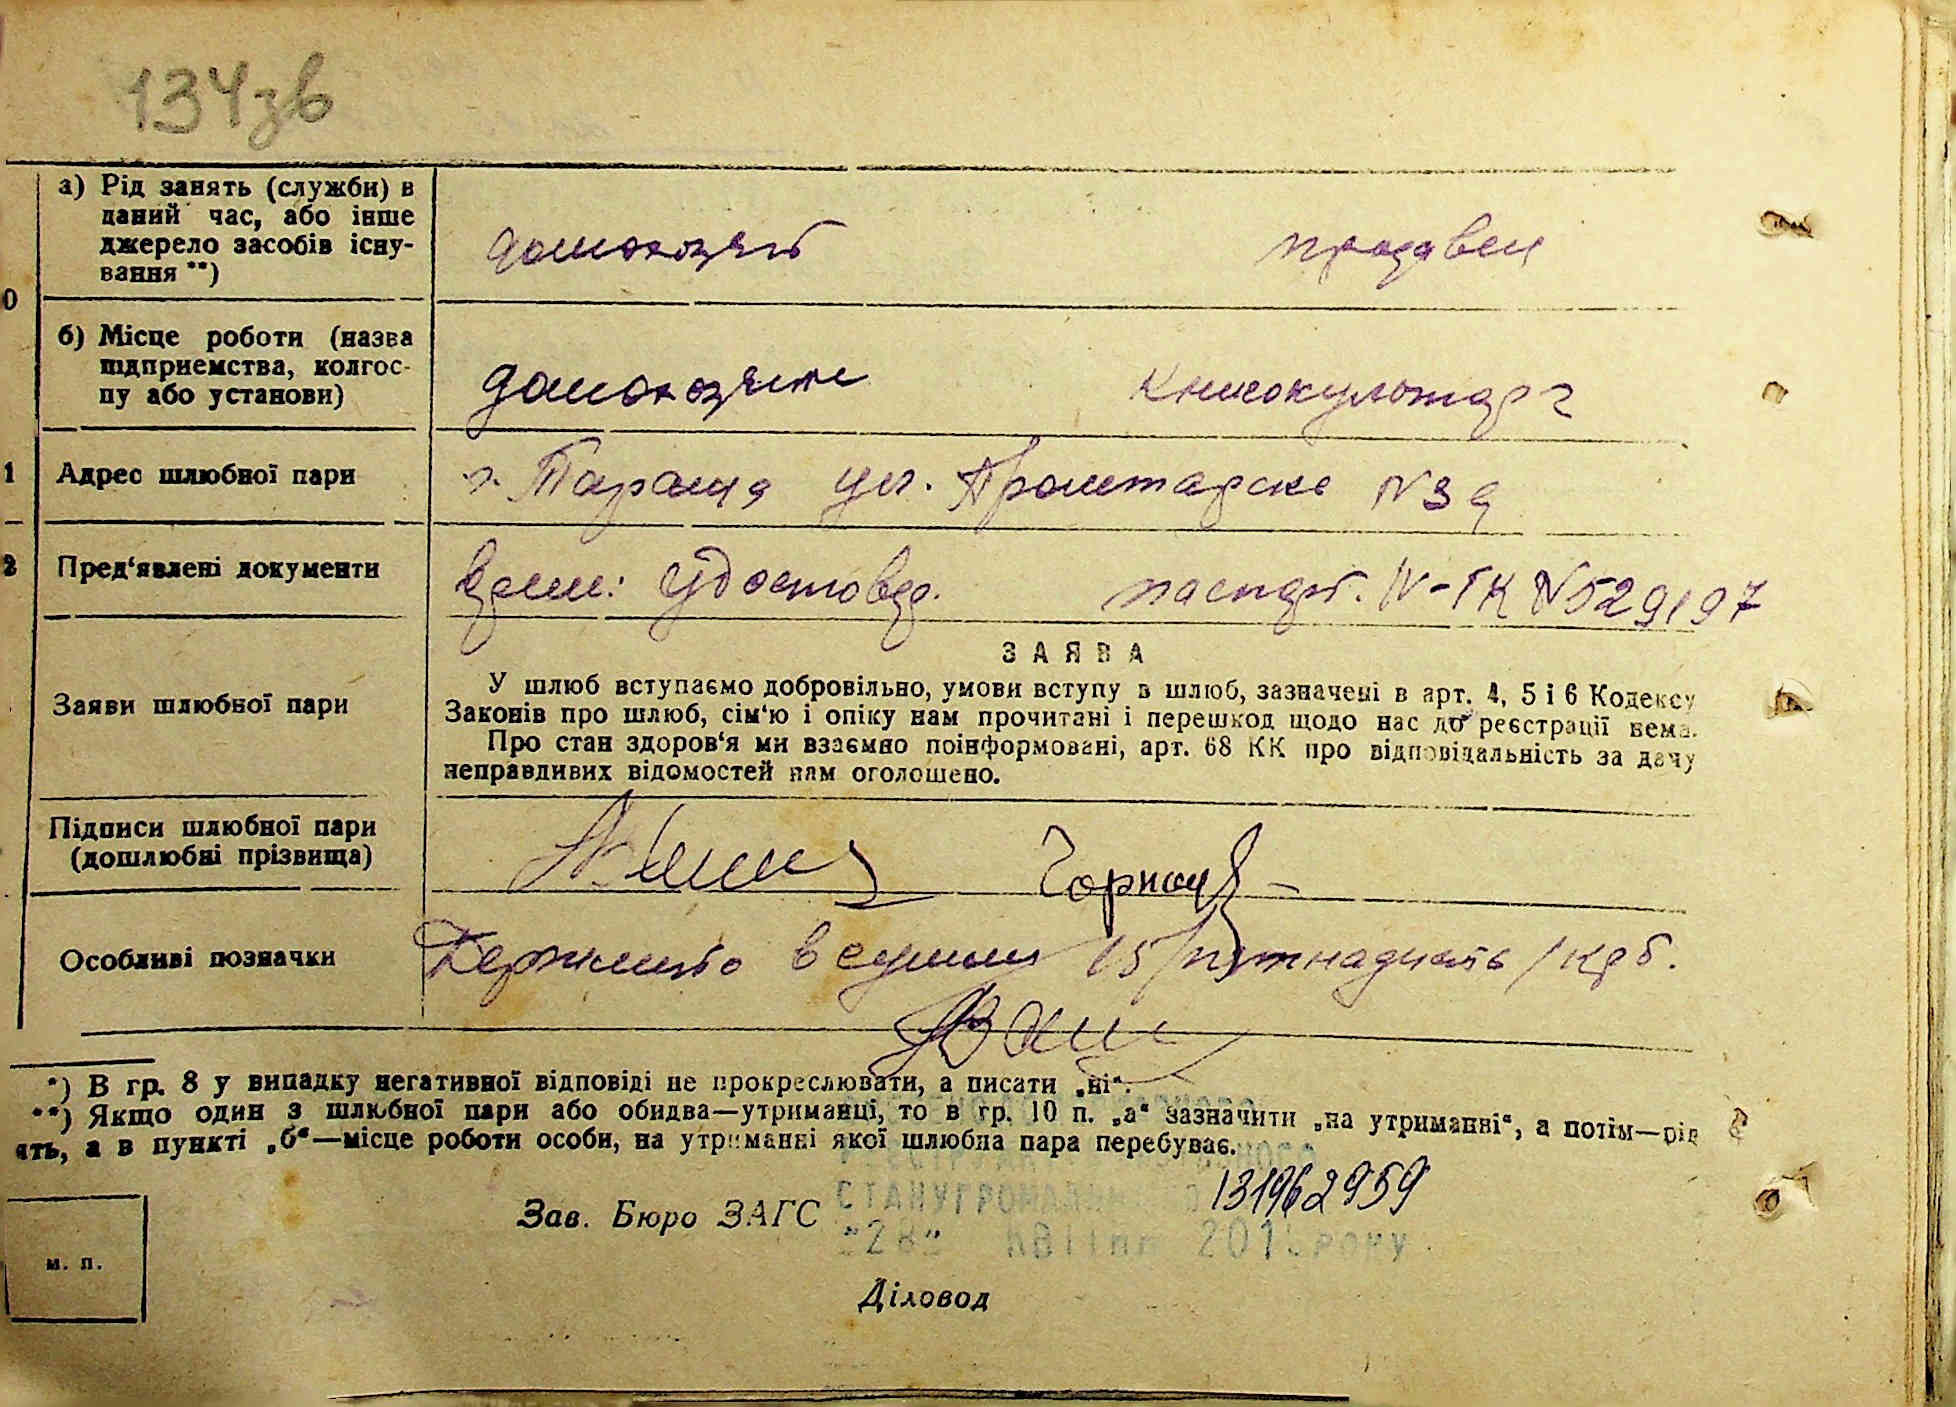 134зв
а) Рід занять (служби) в
даний час, або інше
джерело засобів існу-
вання **)
домохозяїн
продавец
0
б) Місце роботи (назва
підприємства, колгос-
пу або установи)
домохозяин
Книгокультторг
1
Адрес шлюбної пари
г. Тараща ул. N
2
Пред'явлені документи
удостовер.
паспорт. IV-ГК N529197
Заяви шлюбної пари
ЗАЯВА
У шлюб вступаємо добровільно, умови вступу в шлюб, зазначені в арт. 4, 5 і 6 Кодексу
Законів про шлюб, сім'ю і опіку нам прочитані і перешкод щодо нас до реєстрації нема.
Про стан здоров'я ми взаємно поінформовані, арт. 68 КК про відповідальність за дачу
неправдивих відомостей нам оголошено.
Підписи шлюбної пари
(дошлюбні прізвища)
Особливі позначки
в сумме 15/пятнадцать/крб.
*) В гр. 8 у випадку негативної відповіді не прокреслювати, а писати „ні“.
**) Якщо один з шлюбної пари або обидва—утриманці, то в гр. 10 п. „а“ зазначити „на утриманні“, а потім—рід
ять, а в пункті „б“—місце роботи особи, на утриманні якої шлюбна пара перебуває.
131962959
Зав. Бюро ЗАГС
"28" квітня року
м. п.
Діловод